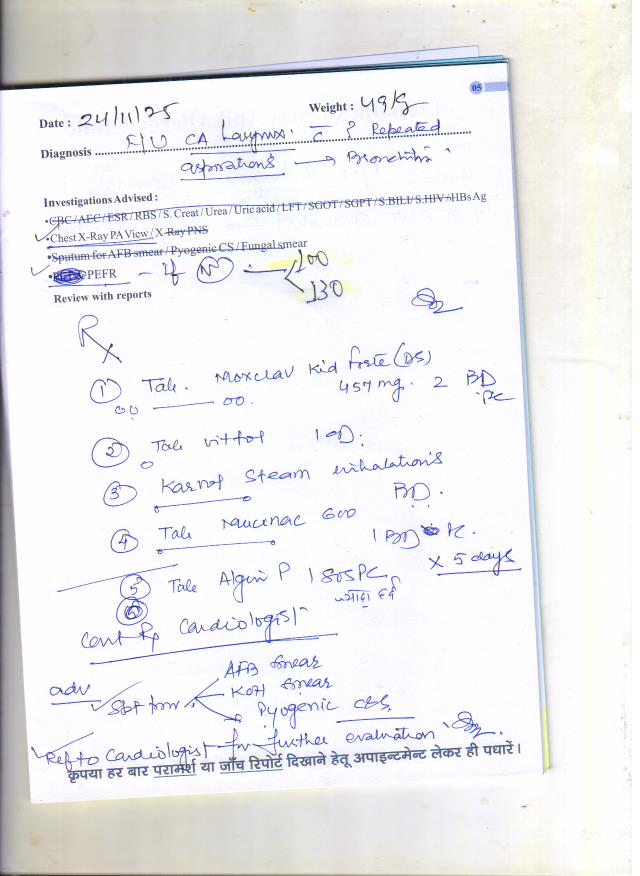 05
Date : 24/11/25 Weight : 49kg
Diagnosis F/U CA Larynx. c ? Repeated
aspirations → Bronchitis
Investigations Advised :
•CBC / AEC / ESR / RBS / S. Creat / Urea / Uric acid / LFT / SGOT / SGPT / S.BILI / S.HIV / HBs Ag
•Chest X-Ray PA View / X-Ray PNS
•Sputum for AFB smear / Pyogenic CS / Fungal smear
PEFR - if N 100
130
Review with reports
Rx
1 Tab. Moxclav Kid forte (DS)
457 mg. 2 BD
PC
2 Tab 1 OD.
3 Karvol Steam inhalations
BD.
4 Tab Mucinac 600 1 BD PC.
x 5 days
5 Tab Algin P 1 SOS PC
ज्यादा दर्द
6
Cont Rx Cardiologist
adv
AFB Smear
Sputum KOH Smear
Pyogenic C&S
Ref to Cardiologist for further evaluation.
कृपया हर बार परामर्श या जाँच रिपोर्ट दिखाने हेतू अपाइन्टमेन्ट लेकर ही पधारें।